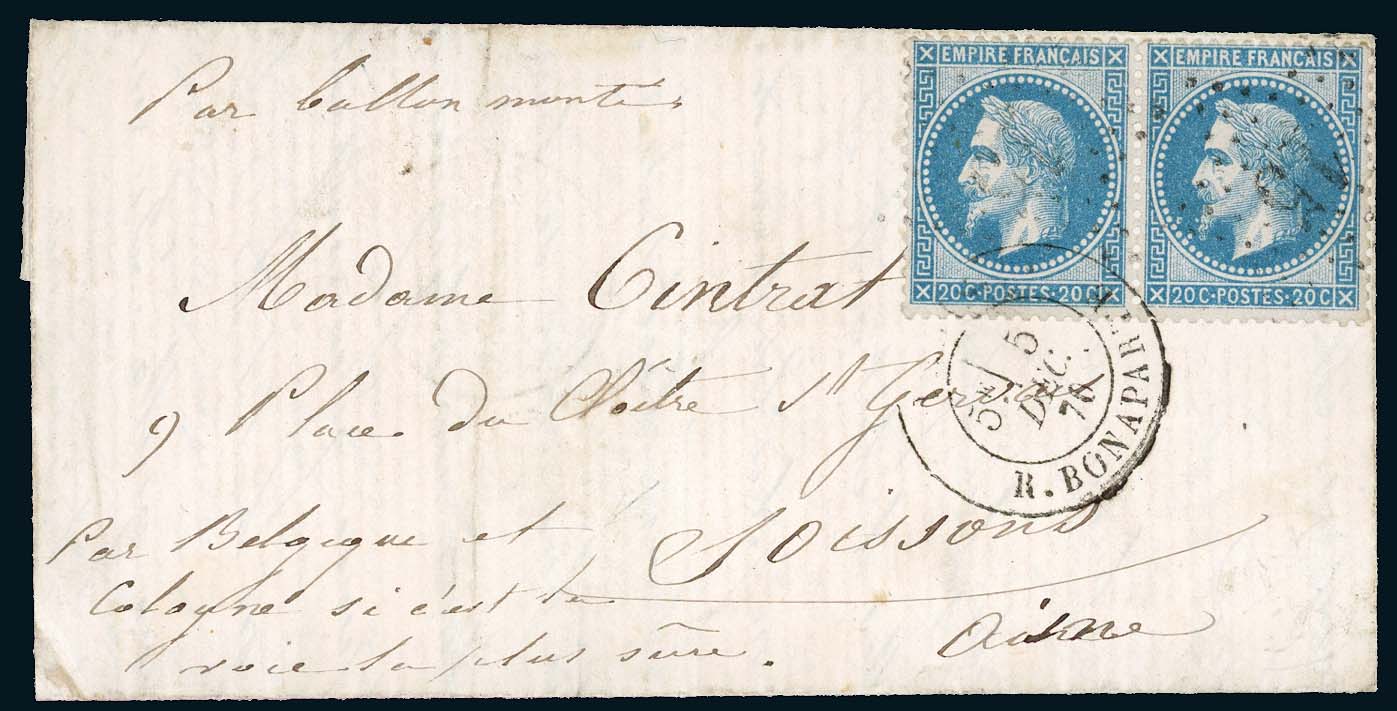 Par ballon monté.
EMPIRE FRANÇAIS
20C·POSTES·20C
EMPIRE FRANÇAIS
20C·POSTES·20C
Madame Cintrat
9 Place du Cloître St Gervais
5E/ 5
DÉC.
70
R. BONAPARTE
Soissons
Aisne
Par Belgique et
Cologne si c'est la
voie la plus sûre.